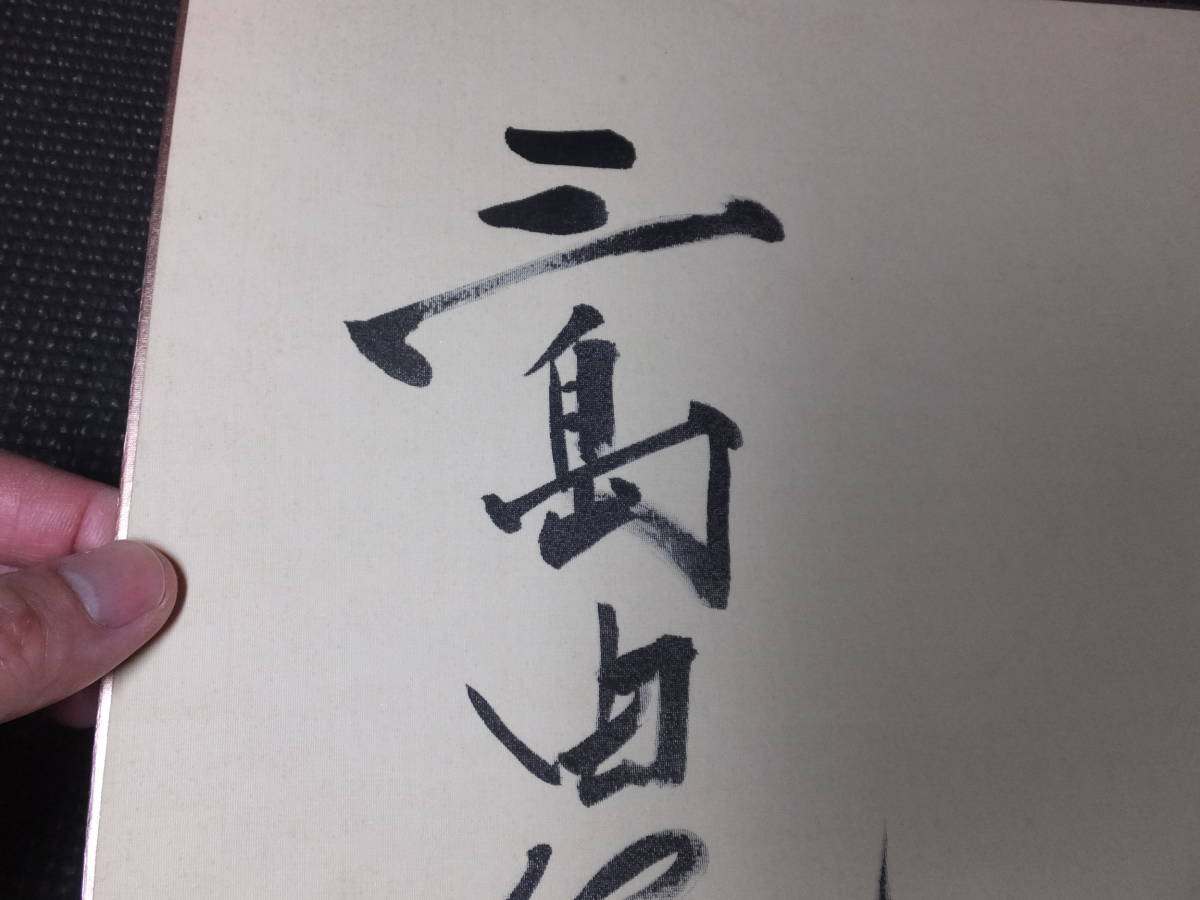 三島由